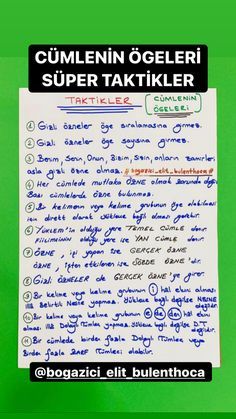 CÜMLENİN ÖGELERİ
SÜPER TAKTİKLER
TAKTİKLER
CÜMLENİN
ÖGELERİ
1 Gizli özneler öge sıralamasına girmez.
2 Gizli özneler öge sayısına girmez.
3 Benim, Senin, Onun, Bizim, Sizin, onların zamirleri
asla gizli özne olmaz. @bogazici_elit_bulenthoca
4 Her cümlede mutlaka ÖZNE olmak zorunda değil
Bazı cümlelerde özne bulunmaz.
5 Bir kelimenin veya kelime grubunun öge olabilmesi
için direkt olarak yükleme bağlı olması gerekir.
6 YÜKLEM'in olduğu yere TEMEL CÜMLE denir.
FİİLİMSİNİN olduğu yere ise YAN CÜMLE denir.
7 ÖZNE, işi yapan ise GERÇEK ÖZNE
ÖZNE, işten etkilenen ise SÖZDE ÖZNE'dir.
8 Gizli ÖZNELER de GERÇEK ÖZNE'ye girer.
9 Bir kelime veya kelime grubunun hâl eki alması
Belirtili Nesne yapmaz. Yükleme bağlı değilse NESNE
10 Bir kelime veya kelime grubunun e de den hâl eki
alması Dolaylı Tümleç yapmaz. Yükleme bağlı değilse D.T
değildir.
11 Bir cümlede birden fazla Dolaylı Tümleç veya
Birden fazla Zarf Tümleci olabilir.
@bogazici_elit_bulenthoca